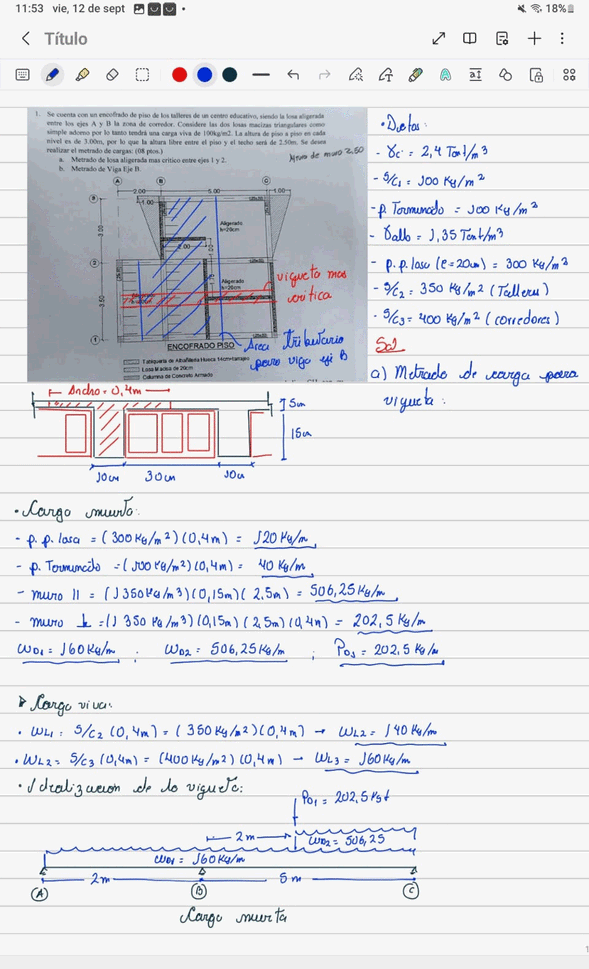 11:53 vie, 12 de sept
18%
Título
1. Se cuenta con un encofrado de piso de los talleres de un centro educativo, siendo la losa aligerada
entre los ejes A y B la zona de corredor. Considere las dos losas macizas triangulares como
simple adorno por lo tanto tendrá una carga viva de 100kg/m2. La altura de piso a piso en cada
nivel es de 3.00m, por lo que la altura libre entre el piso y el techo será de 2.50m. Se desea
realizar el metrado de cargas: (08 ptos.)
a. Metrado de losa aligerada mas critico entre ejes 1 y 2.
b. Metrado de Viga Eje B.
Altura de muro 2,50
A B C
2.00 5.00 1.00
1.00
3
3.00
Aligerado
h=20cm
2.00
2
Aligerado
h=20cm
3.50
1
vigueta mas
critica
ENCOFRADO PISO
Área tributario
para viga eje B
Losa Maciza de 20cm
Columna de Concreto Armado
• Datos:
- γc = 2,4 Ton/m³
- S/C1 = 100 Kg/m²
- p. Terminado = 100 Kg/m²
- γalb = 1,35 Tont/m³
- p.p. losa (e=20cm) = 300 Kg/m²
- S/C2 = 350 Kg/m² (Talleres)
- S/C3 = 400 Kg/m² (corredores)
Sol
a) Metrado de carga para
vigueta:
Ancho = 0,4m
5cm
15cm
10cm 30cm 10cm
• Carga muerta:
- p.p. losa = (300 Kg/m²)(0,4m) = 120 Kg/m
- p. Terminado = (100 Kg/m²)(0,4m) = 40 Kg/m
- muro || = (1350 Kg/m³)(0,15m)(2.5m) = 506,25 Kg/m
- muro ⊥ = (1 350 Kg/m³)(0,15m)(2,5m)(0,4m) = 202,5 Kg/m
WD1 = 160 Kg/m ; WD2 = 506,25 Kg/m ; PD1 = 202,5 Kg/m
Carga viva:
• WL1 = S/C2 (0,4m) = (350 Kg/m²)(0,4m) → WL2 = 140 Kg/m
• WL2 = S/C3 (0,4m) = (400 Kg/m²)(0,4m) → WL3 = 160 Kg/m
• Idealizacion de la vigueta:
PD1 = 202,5 Kgf
2m
WD2 = 506,25
WD1 = 160 Kg/m
2m 5m
A B C
Carga muerta